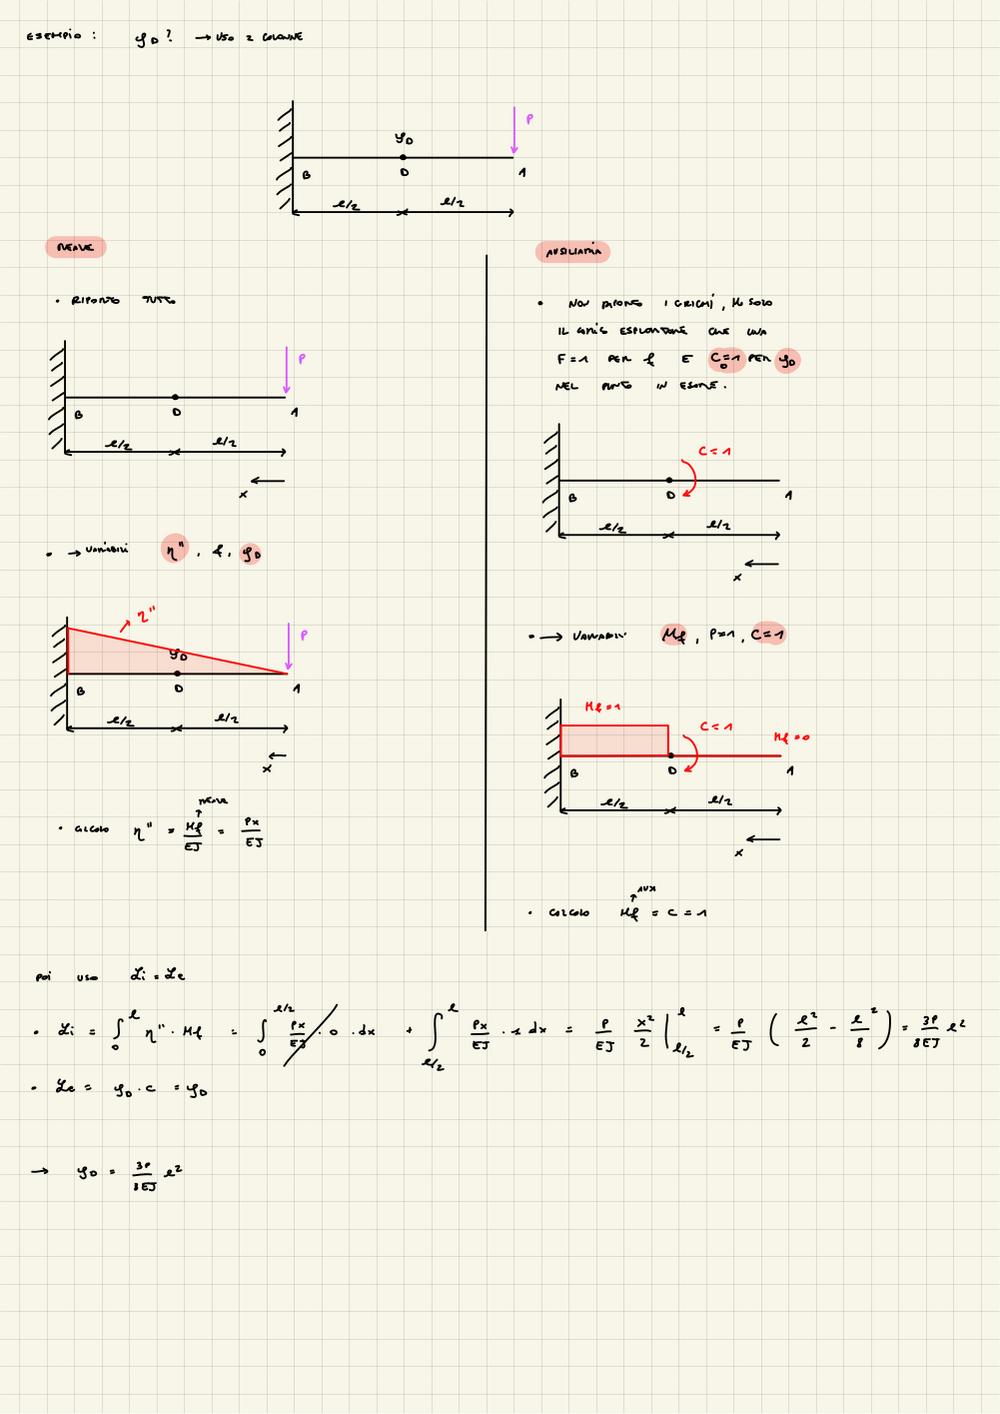 ESEMPIO : φD ? → USO 2 COLONNE
P
φD
B D 1
l/2 l/2
REALE
• RIPORTO TUTTO
P
B D 1
l/2 l/2
x
• → VARIABILI η'' , f, φD
η''
P
φD
B D 1
l/2 l/2
x
REALE
• CALCOLO η'' = Mf/EJ = Px/EJ
AUSILIARIA
• NON RIPORTO I CARICHI, MA SOLO
IL CARICO ESPLORATORE CHE UNA
F=1 PER f E CD=1 PER φD
NEL PUNTO IN ESAME.
C=1
B D 1
l/2 l/2
x
• → VARIABILI Mf , P=1 , C=1
Mf=1
C=1
Mf=0
B D 1
l/2 l/2
x
AUX
• CALCOLO Mf = C = 1
POI USO Li = Le
• Li = ∫₀ˡ η'' · Mf = ∫₀^(l/2) Px/EJ · 0 · dx + ∫_(l/2)^l Px/EJ · 1 dx = P/EJ x²/2 |_(l/2)^l = P/EJ ( l²/2 - l²/8 ) = 3P/8EJ l²
• Le = φD · C = φD
→ φD = 3P/8EJ l²